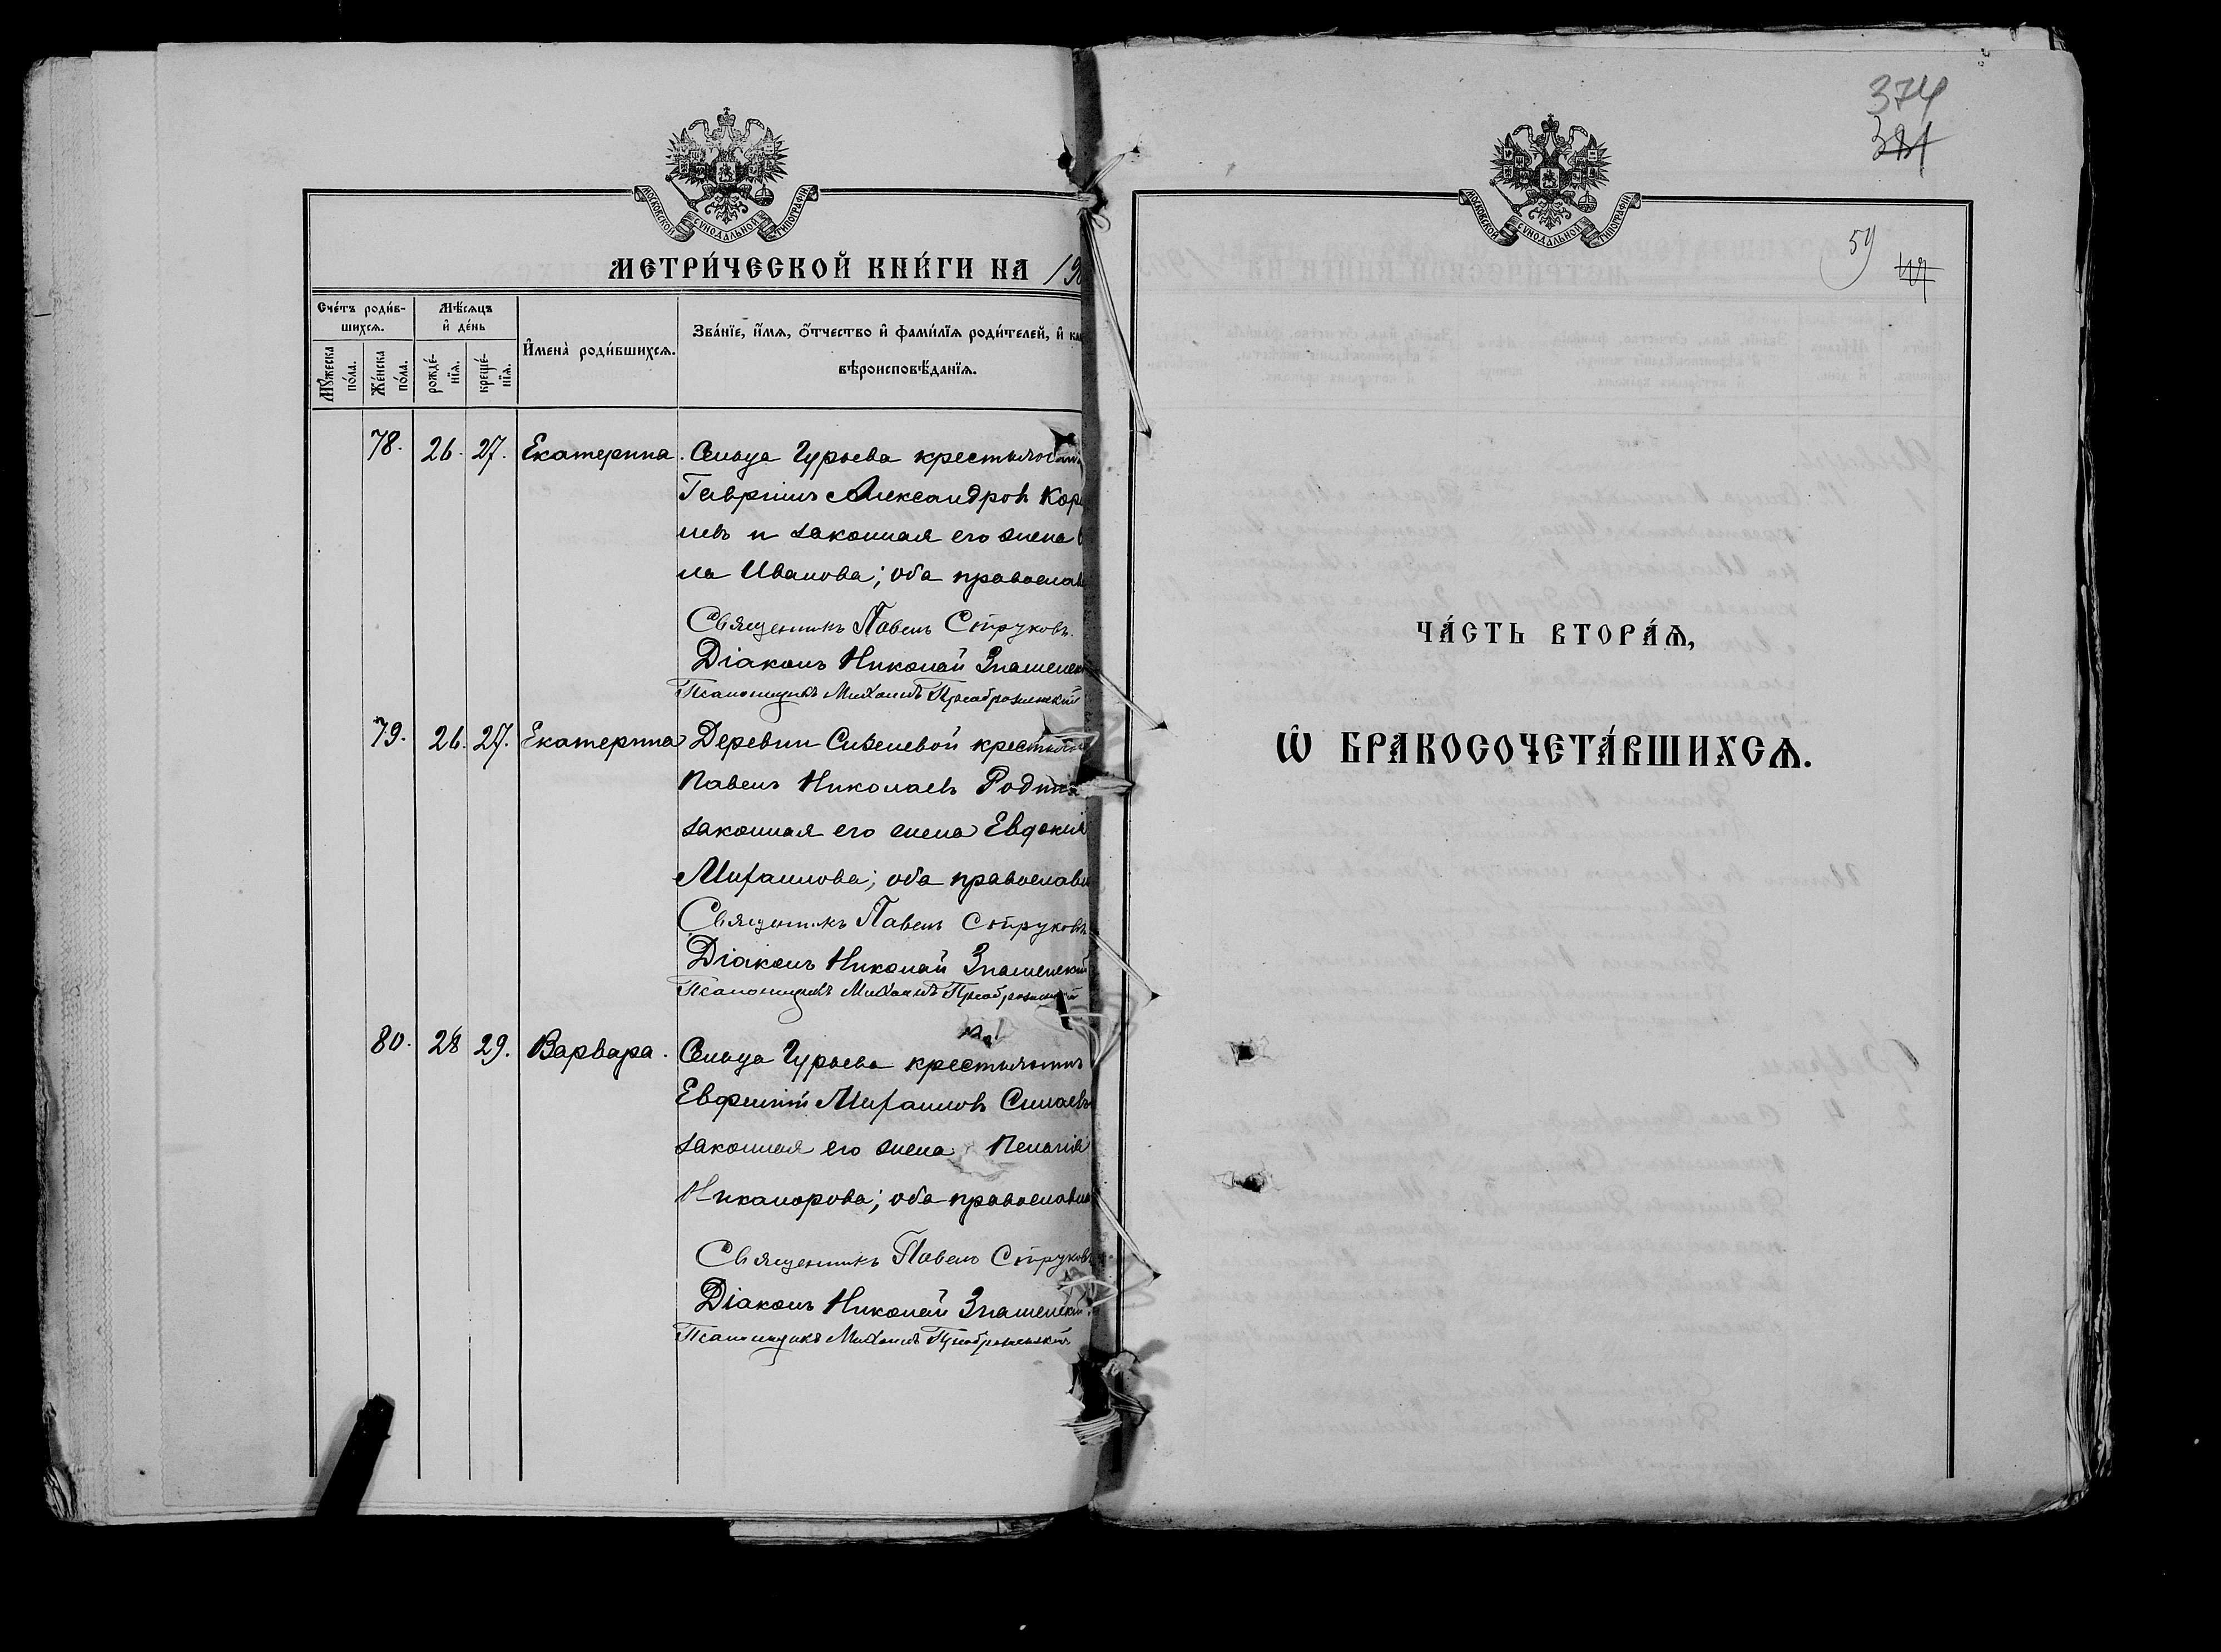 МОСКОВСКОЙ СѴНОДАЛЬНОЙ ТИПОГРАФІИ
МЕТРИ́ЧЕСКОЙ КНИ́ГИ НА 19
Сче́тъ роди́в-
шихсѧ.
Мꙋ́жеска
по́ла.
Же́нска
по́ла.
Мѣ́сѧцъ
и҆ де́нь
рожде́-
нїѧ.
креще́-
нїѧ.
И҆мена̀ роди́вшихсѧ.
Зва́нїе, и҆́мѧ, ѻ҆́тчество и҆ фами́лїѧ роди́телей, и҆ ка
вѣроисповѣ́данїѧ.
78. 26. 27. Екатерина. Сельца Гурьева крестьянинъ
Гавріилъ Александровъ Кор
левъ и законная его жена
ла Иванова; оба православ
Священникъ Павелъ Струковъ.
Діаконъ Николай Знаменск
Псаломщикъ Михаилъ Преображенскій
79. 26. 27. Екатерина Деревни Сизеневой крестьян
Павелъ Николаевъ Родин
законная его жена Евдокія
Михаилова; оба православн
Священникъ Павелъ Струковъ
Діаконъ Николай Знаменскій
Псаломщикъ Михаилъ Преображенскій
80. 28 29. Варвара. Сельца Гурьева крестьянинъ
Евфимій Михаиловъ Силаевъ
законная его жена Пелагія
Никанорова; оба православн
Священникъ Павелъ Струковъ
Діаконъ Николай Знаменскій
Псаломщикъ Михаилъ Преображенскій
374
381
МОСКОВСКОЙ СѴНОДАЛЬНОЙ ТИПОГРАФІИ
59
ЧА́СТЬ ВТОРА́Ѧ,
Ѡ҆ БРАКОСОЧЕТА́ВШИХСѦ.